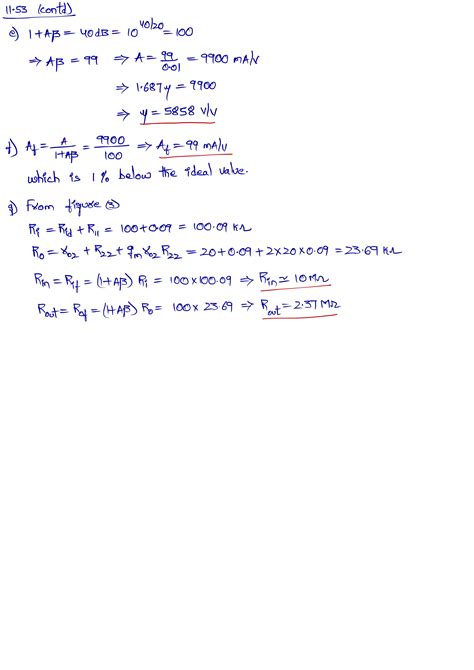 11.53 (contd)
e) 1+Aβ = 40dB = 10^40/20 = 100
⇒ Aβ = 99 ⇒ A = 99/0.01 = 9900 mA/V
⇒ 1.687μ = 9900
⇒ μ = 5858 V/V
f) Af = A/(1+Aβ) = 9900/100 ⇒ Af = 99 mA/V
which is 1% below the ideal value.
g) From figure (3)
Ri = Rid + R11 = 100+0.09 = 100.09 KΩ
Ro = ro2 + R22 + gm ro2 R22 = 20+0.09+2×20×0.09 = 23.69 KΩ
Rin = Rif = (1+Aβ) Ri = 100×100.09 ⇒ Rin ≃ 10 MΩ
Rout = Rof = (1+Aβ) Ro = 100×23.69 ⇒ Rout = 2.37 MΩ